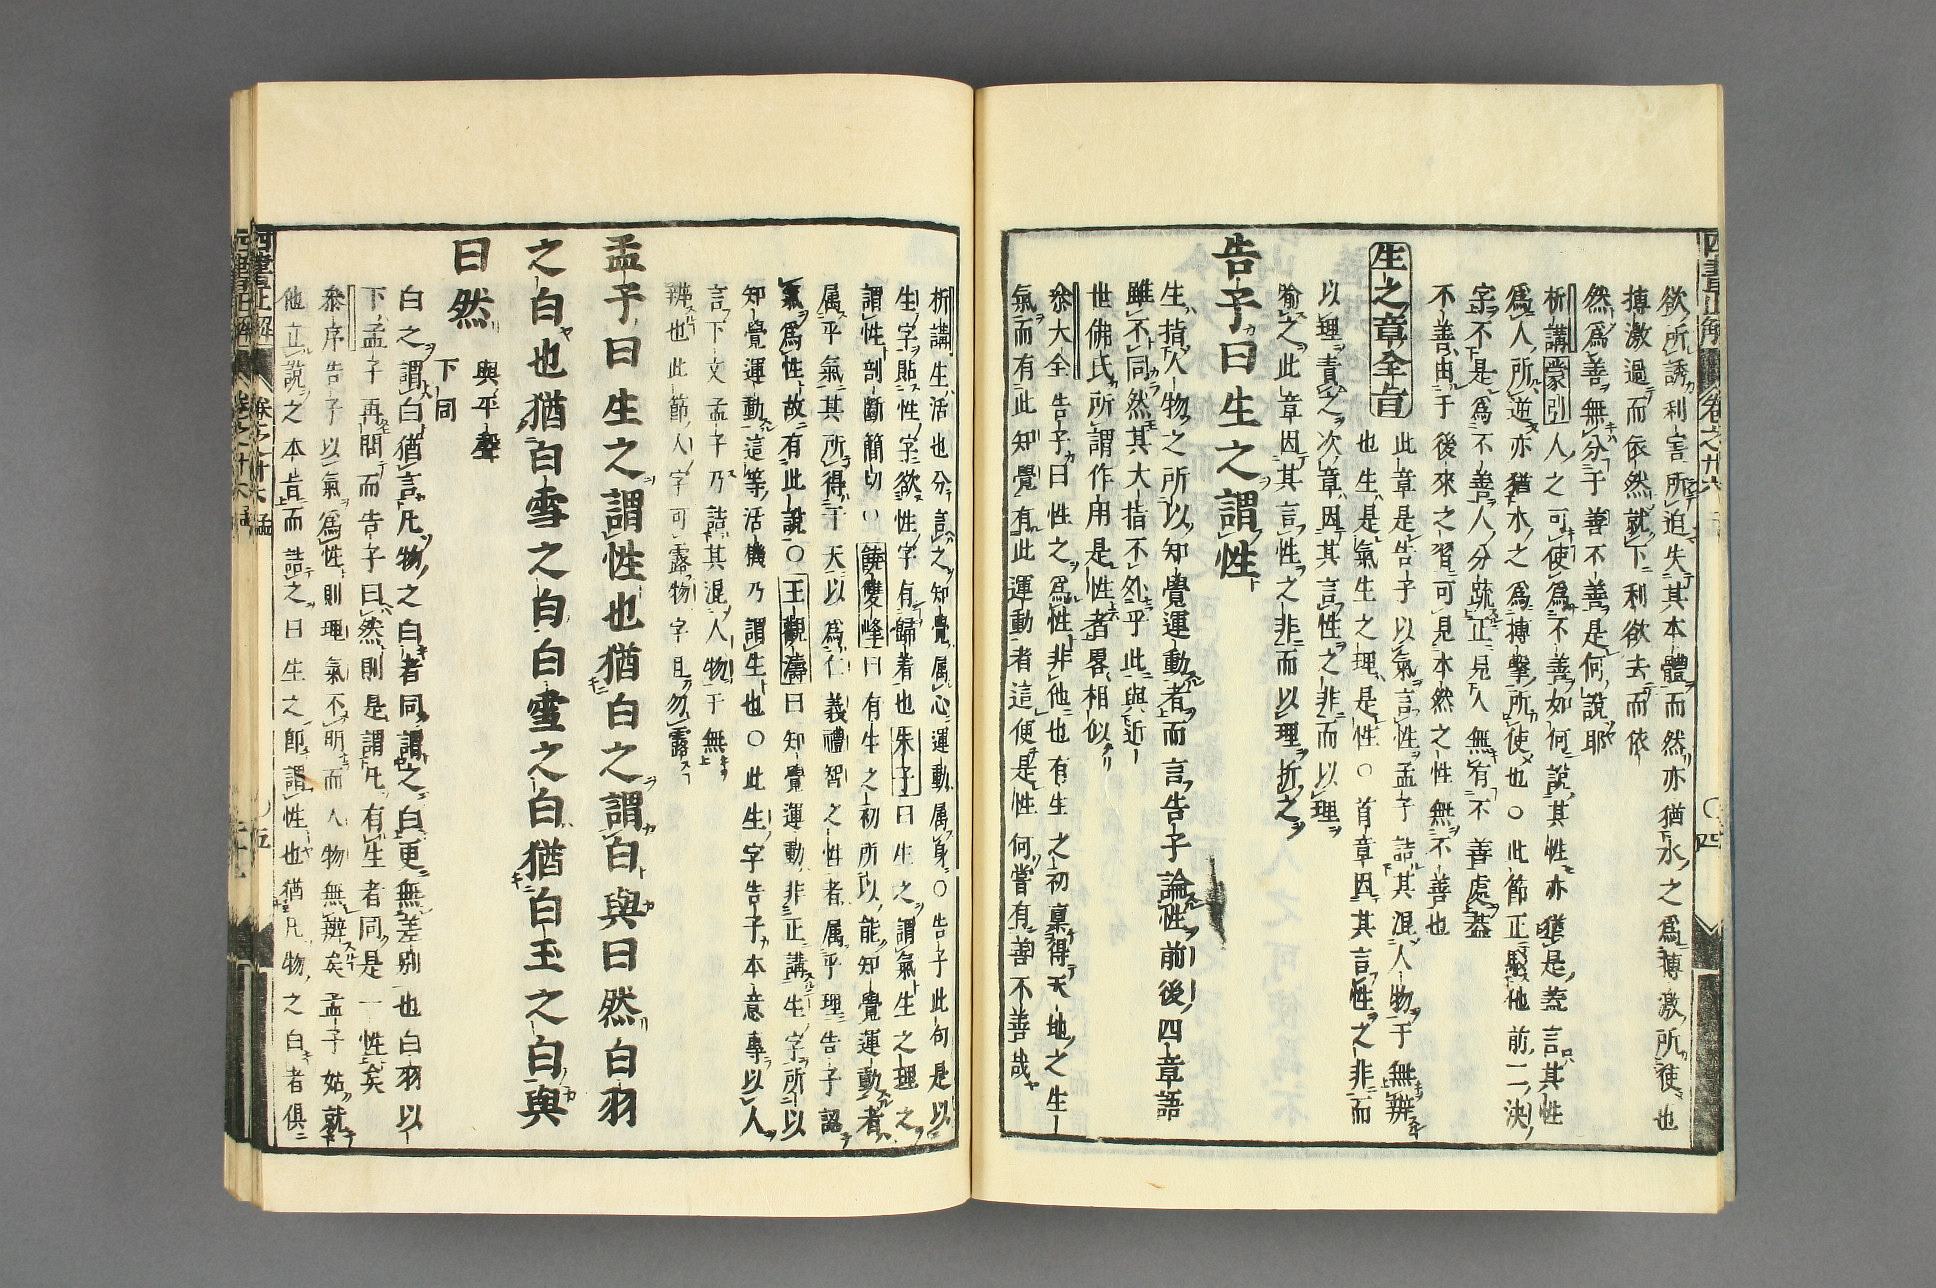 欲所誘利害所迫失其本體而然亦猶水之爲搏激所使也
搏激過而依然就下利欲去而依
然爲善無分于善不善是何說耶
析講蒙引人之可使爲不善如何說其性亦猶是蓋言其性
爲人所逆亦猶水之爲搏擊所使也○此節正駁他前二決
字不是爲不善人分疏正見人無有不善處蓋
不善由于後來之習可見本然之性無不善也
生之章全旨
此章是告子以氣言性孟子詰其混人物于無辨
也生是氣生之理是性○首章因其言性之非而
以理責之次章因其言性之非而以理
喻之此章因其言性之非而以理折之
告子曰生之謂性
生指人物之所以知覺運動者而言告子論性前後四章語
雖不同然其大指不外乎此與近
世佛氏所謂作用是性者畧相似
叅大全告子曰性之爲性非他也有生之初稟得天地之生
氣而有此知覺有此運動者這便是性何嘗有善不善哉
析講生活也分言之知覺属心運動属身○告子此句是以
生字貼性字欲性字有歸着也朱子曰生之謂氣生之理之
謂性剖斷簡切○饒雙峰曰有生之初所以能知覺運動者
属乎氣其所得于天以爲仁義禮智之性者属乎理告子認
氣爲性故有此說○王觀濤曰知覺運動非正講生字所以
知覺運動這等活機乃謂生也○此生字告子本意專以人
言下文孟子乃詰其混人物于無
辨也此節人字可露物字且勿露
孟子曰生之謂性也猶白之謂白與曰然白羽
之白也猶白雪之白白雪之白猶白玉之白與
曰然
與平聲
下同
白之謂白猶言凡物之白者同謂之白更無差别也白羽以
下孟子再問而告子曰然則是謂凡有生者同是一性矣
叅序告子以氣爲性則理氣不明而人物無辨矣孟子姑就
他立說之本肯而詰之曰生之卽謂性也猶凡物之白者俱